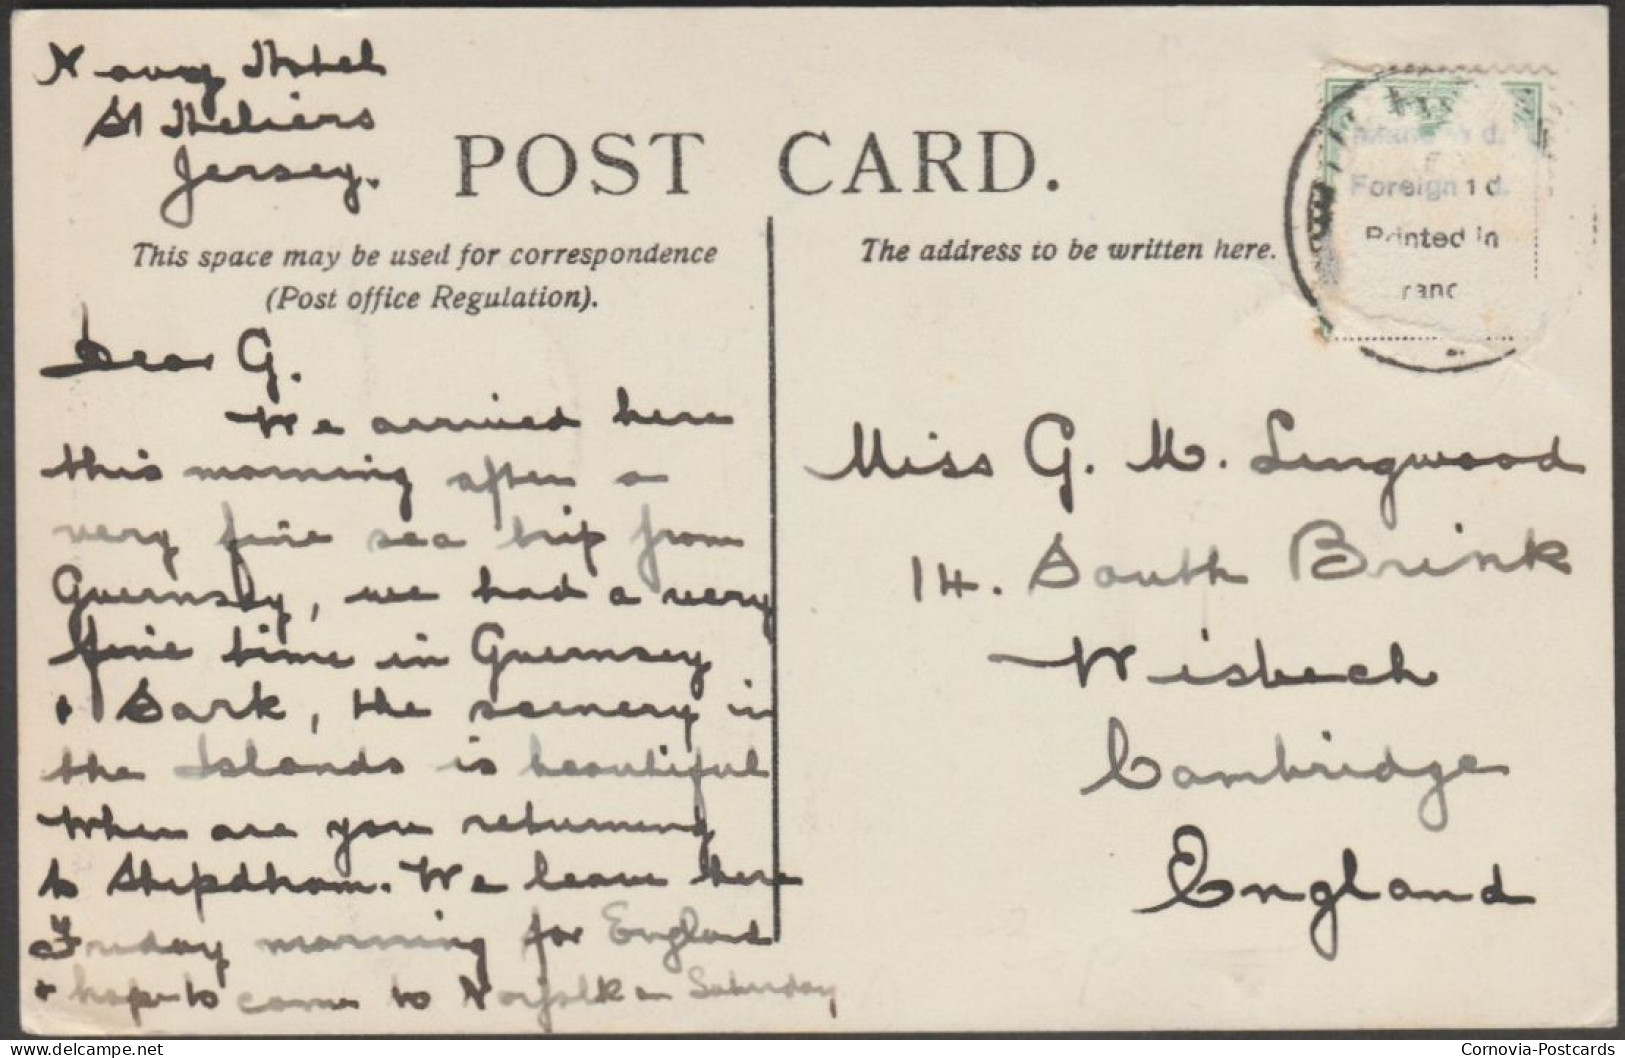 Navy Hotel
St Heliers
Jersey.
POST CARD.
This space may be used for correspondence
(Post office Regulation).
The address to be written here.
Foreign 1 d.
Printed in
Dear G.
We arrived here
this morning after a
very fine sea trip from
Guernsey, we had a very
fine time in Guernsey
& Sark, the scenery in
the Islands is beautiful
When are you returning
to Shipdham. We leave here
Friday morning for England
& hope to come to Norfolk on Saturday
Miss G. M. Lingwood
14. South Brink
Wisbech
Cambridge
England
delcampe.net
Cornovia-Postcards